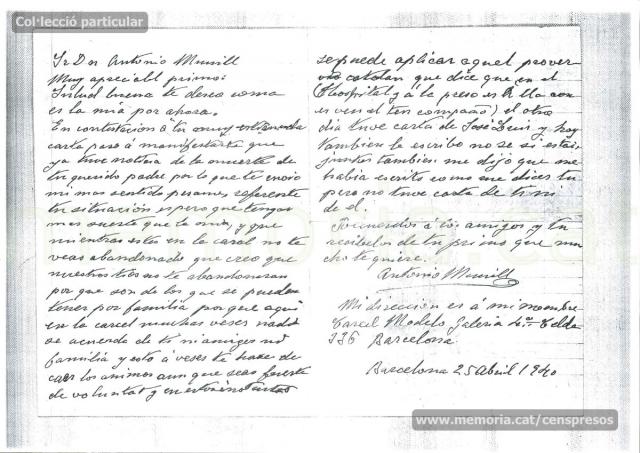 Col·lecció particular
Sr Don Antonio Murill
Muy apreciabl primo:
Salud buena te deseo como
es la mia por ahora.
En contestación á tu muy estimada
carta paso á manifestarte que
ya tuve noticia de la muerte de
tu querido padre por lo que te envio
mi mas sentido pesame, referente
tu situacion espero que tengas
mas suerte que la mia, y que
mientras estes en la carcel no te
veas abandonado que creo que
nuestros tios no te abandonaran
por que son de los que se pueden
tener por familia por que aqui
en la carcel muchas veses nadie
se acuerda de ti ni amigos ni
familia y esto á veses te hase de
caer los animos aun que seas fuerte
de voluntat y en
se puede aplicar aquel prover
vio catalan que dice que en el
Hospital y á la preso es
es ven el ten compañs) el otro
dia tuve carta de José Luis y hoy
tambien le escribo no se si estais
juntos tambien me dijo que me
habia escrito como me dices tu
pero no tuve carta de ti ni
de el.
Recuerdos á los amigos, y tu
recibelos de tu primo que mu
cho te quiere.
Antonio Murill
Mi direccion es á mi nombre
Carcel Modelo Galeria 4ª Celda
336 Barcelona
Barcelona 25 Abril 1940
www.memoria.cat/censpresos